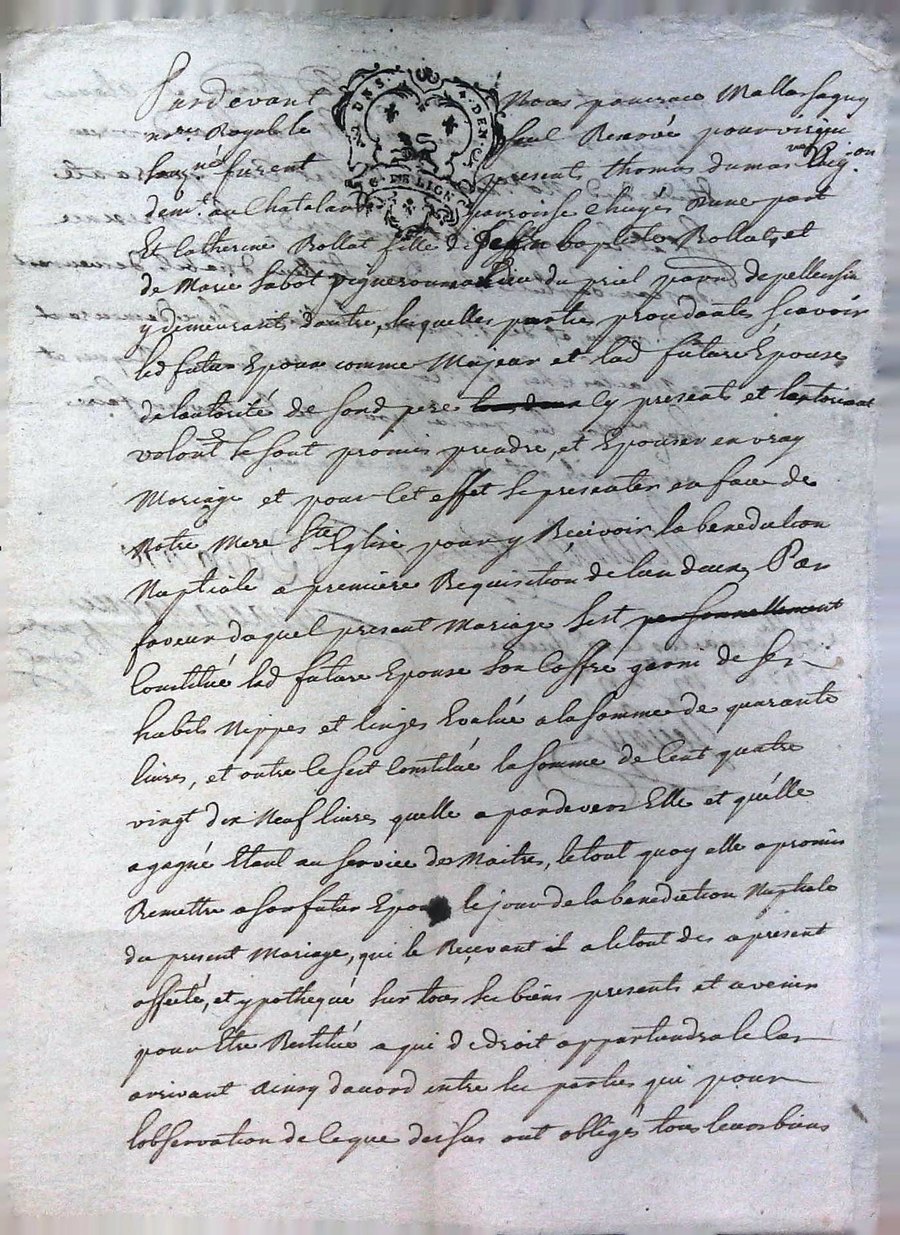 Pardevant Nous pancrace Mallassagny
no.re Royal le seul Reservé pour virieu
souz.né furent presents thomas dumas vigron
dem.t au Chatelard paroisse Chuyés d'une part
Et Catherine Bollat fille de Jean baptiste Bollat, et
de Marie Sabot vigneron au lieu du priel parr. de pellussin
y demeurants d'autre, lesquelles parties procedantes scavoir
led futur Epoux comme Majeur et lad future Epouse
de lautorité de sond pere cy present et lautorisant
volont. se sont promis prendre, et Epouser en vray
Mariage et pour cet effet se presenter en face de
Notre Mere Ste Eglise pour y Recevoir la benediction
Nuptiale a premiere Requisition de lun deux, En
faveur duquel present Mariage sest personnellement
Constitué lad future Epouse son Coffre garni de ses
habits Nippes et linges Evalué a la somme de quarante
livres, et outre ce sest Constitué la somme de Cent quatre
vingt dix Neuf livres quelle a pardevers Elle et qu'elle
a gagné Etant au service des Maitres, le tout quoy elle a promis
Remettre a son futur Epoux le jour de la benediction Nuptiale
du present Mariage, qui le Recevant il a le tout des a present
affecté, et ypothequé sur tous ses biens presents et avenir
pour Etre Restitué a qui de droit appartiendra le Cas
arrivant ainsy d'acord entre les parties qui pour
l'observation de ce que dessus ont obligés tous leurs biens